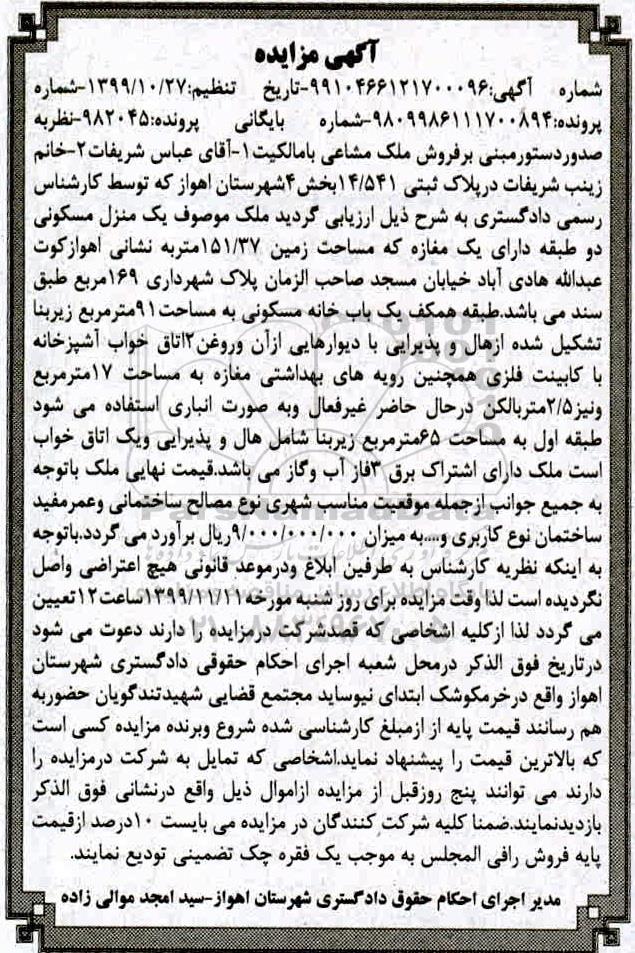 آگهی مزایده
شماره آگهی:۹۹۱۰۴۶۶۱۲۱۷۰۰۰۹۶-تاریخ تنظیم:۱۳۹۹/۱۰/۲۷-شماره
پرونده:۹۸۰۹۹۸۶۱۱۱۷۰۰۸۹۴-شماره بایگانی پرونده:۹۸۲۰۴۵-نظربه
صدوردستورمبنی برفروش ملک مشاعی بامالکیت۱-آقای عباس شریفات۲-خانم
زینب شریفات درپلاک ثبتی ۱۴/۵۴۱بخش۴شهرستان اهواز که توسط کارشناس
رسمی دادگستری به شرح ذیل ارزیابی گردید ملک موصوف یک منزل مسکونی
دو طبقه دارای یک مغازه که مساحت زمین ۱۵۱/۳۷متربه نشانی اهوازکوت
عبدالله هادی آباد خیابان مسجد صاحب الزمان پلاک شهرداری ۱۶۹مربع طبق
سند می باشد.طبقه همکف یک باب خانه مسکونی به مساحت۹۱مترمربع زیربنا
تشکیل شده ازهال و پذیرایی با دیوارهایی ازآن وروغن۲اتاق خواب آشپزخانه
با کابینت فلزی همچنین رویه های بهداشتی مغازه به مساحت ۱۷مترمربع
ونیز۲/۵متربالکن درحال حاضر غیرفعال وبه صورت انباری استفاده می شود
طبقه اول به مساحت ۶۵مترمربع زیربنا شامل هال و پذیرایی ویک اتاق خواب
است ملک دارای اشتراک برق ۳فاز آب وگاز می باشد.قیمت نهایی ملک باتوجه
به جمیع جوانب ازجمله موقعیت مناسب شهری نوع مصالح ساختمانی وعمرمفید
ساختمان نوع کاربری و....به میزان ۹/۰۰۰/۰۰۰/۰۰۰ریال برآورد می گردد.باتوجه
به اینکه نظریه کارشناس به طرفین ابلاغ ودرموعد قانونی هیچ اعتراضی واصل
نگردیده است لذا وقت مزایده برای روز شنبه مورخه۱۳۹۹/۱۱/۱۱ساعت۱۲تعیین
می گردد لذا ازکلیه اشخاصی که قصدشرکت درمزایده را دارند دعوت می شود
درتاریخ فوق الذکر درمحل شعبه اجرای احکام حقوقی دادگستری شهرستان
اهواز واقع درخرمکوشک ابتدای نیوساید مجتمع قضایی شهیدتندگویان حضوربه
هم رسانند قیمت پایه از ازمبلغ کارشناسی شده شروع وبرنده مزایده کسی است
که بالاترین قیمت را پیشنهاد نماید.اشخاصی که تمایل به شرکت درمزایده را
دارند می توانند پنج روزقبل از مزایده ازاموال ذیل واقع درنشانی فوق الذکر
بازدیدنمایند.ضمنا کلیه شرکت کنندگان در مزایده می بایست ۱۰درصد ازقیمت
پایه فروش رافی المجلس به موجب یک فقره چک تضمینی تودیع نمایند.
مدیر اجرای احکام حقوق دادگستری شهرستان اهواز-سید امجد موالی زاده
ParsNamadData